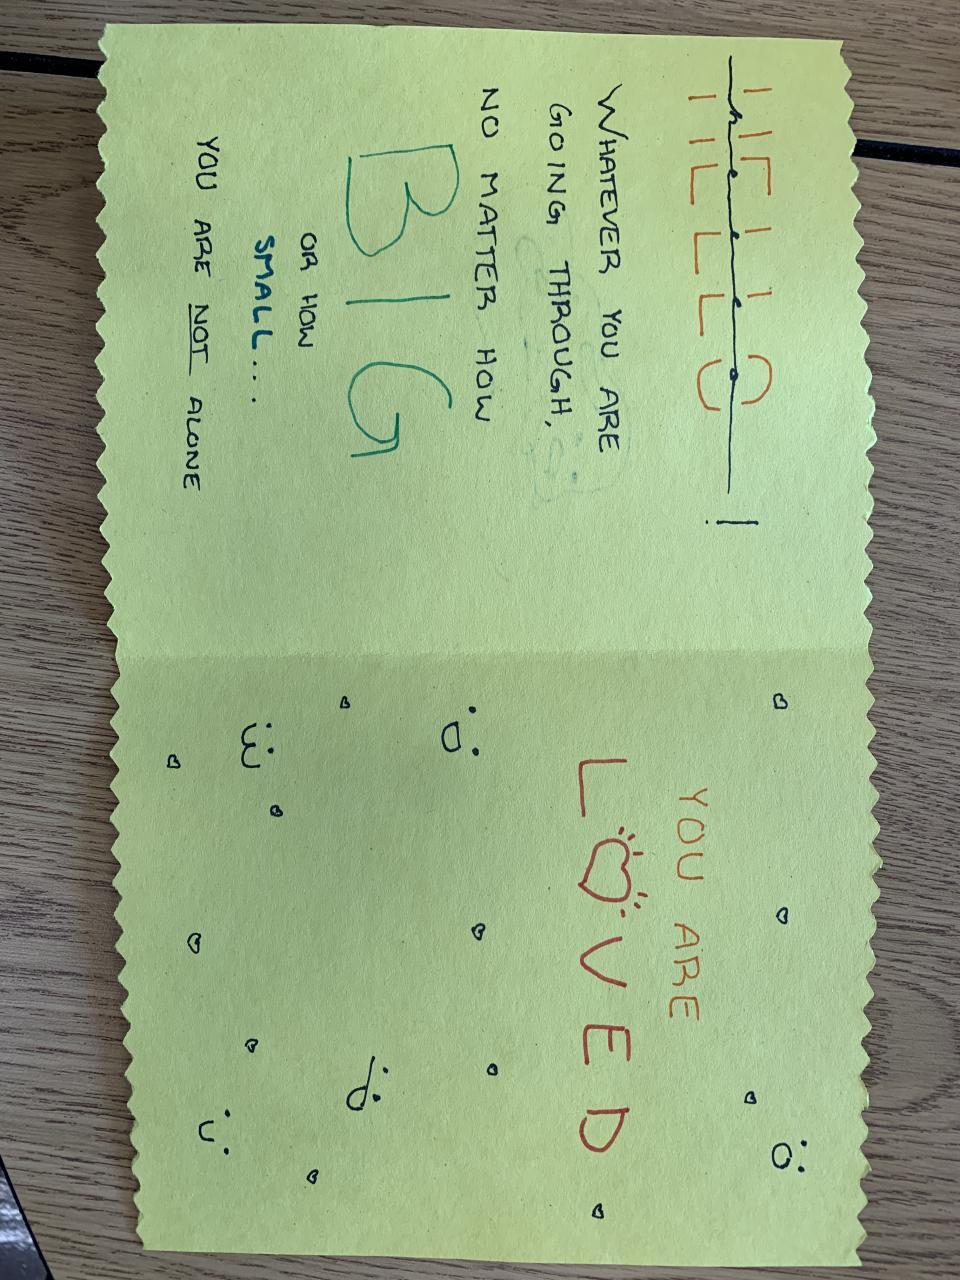 HELLO
hello!
WHATEVER YOU ARE
GOING THROUGH,
NO MATTER HOW
BIG
OR HOW
SMALL...
YOU ARE NOT ALONE
YOU ARE
LOVED